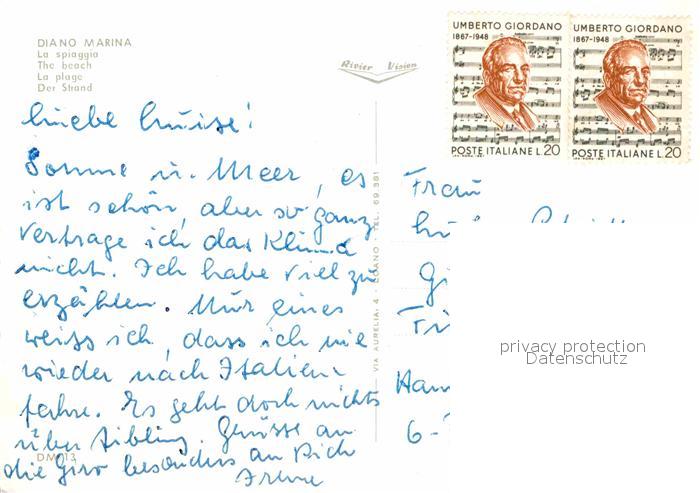 DIANO MARINA
La spiaggia
The beach
La plage
Der Strand
Rivier Vision
UMBERTO GIORDANO
1867-1948
POSTE ITALIANE L.20
UMBERTO GIORDANO
1867-1948
POSTE ITALIANE L.20
Liebe Luise!
Sonne u. Meer, es
ist schön, aber so ganz
vertrage ich das Klima
nicht. Ich habe viel zu
erzählen. Nur eines
weiss ich, dass ich nie
wieder nach Italien
fahre. Es geht doch nichts
über Aibling. Grüsse an
die Giro besonders an Dich
Irene
DM 13
VIA AURELIA, 4 - TEL. 69 381
Frau
Lu
Gi
Tri
Ham
6-
privacy protection
Datenschutz